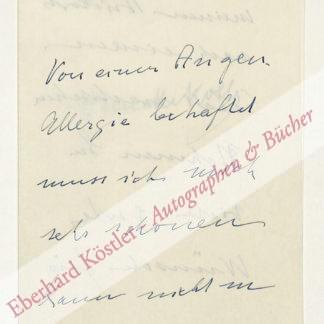 Von einer Augen
Allergie behaftet
muss ich mich
sehr schonen
kann nicht m
Eberhard Köstler - Autographen & Bücher